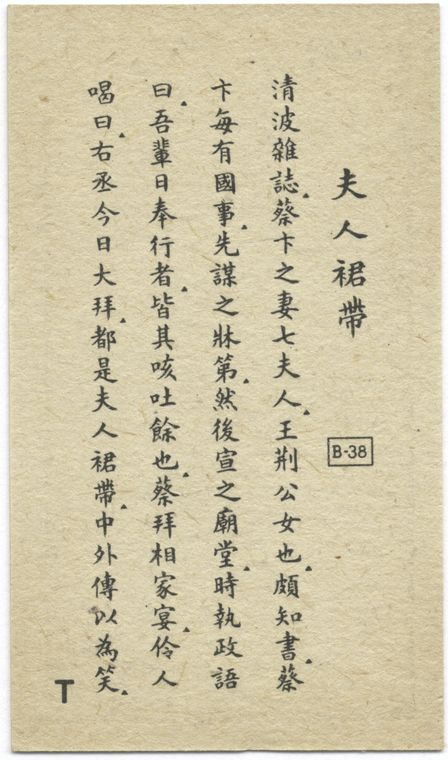 夫人裙帶
B-38
清波雜誌蔡卞之妻七夫人王荆公女也頗知書蔡
卞每有國事先謀之牀第然後宣之廟堂時執政語
曰吾輩日奉行者皆其咳吐餘也蔡拜相家宴伶人
喝曰右丞今日大拜都是夫人裙帶中外傳以為笑
T